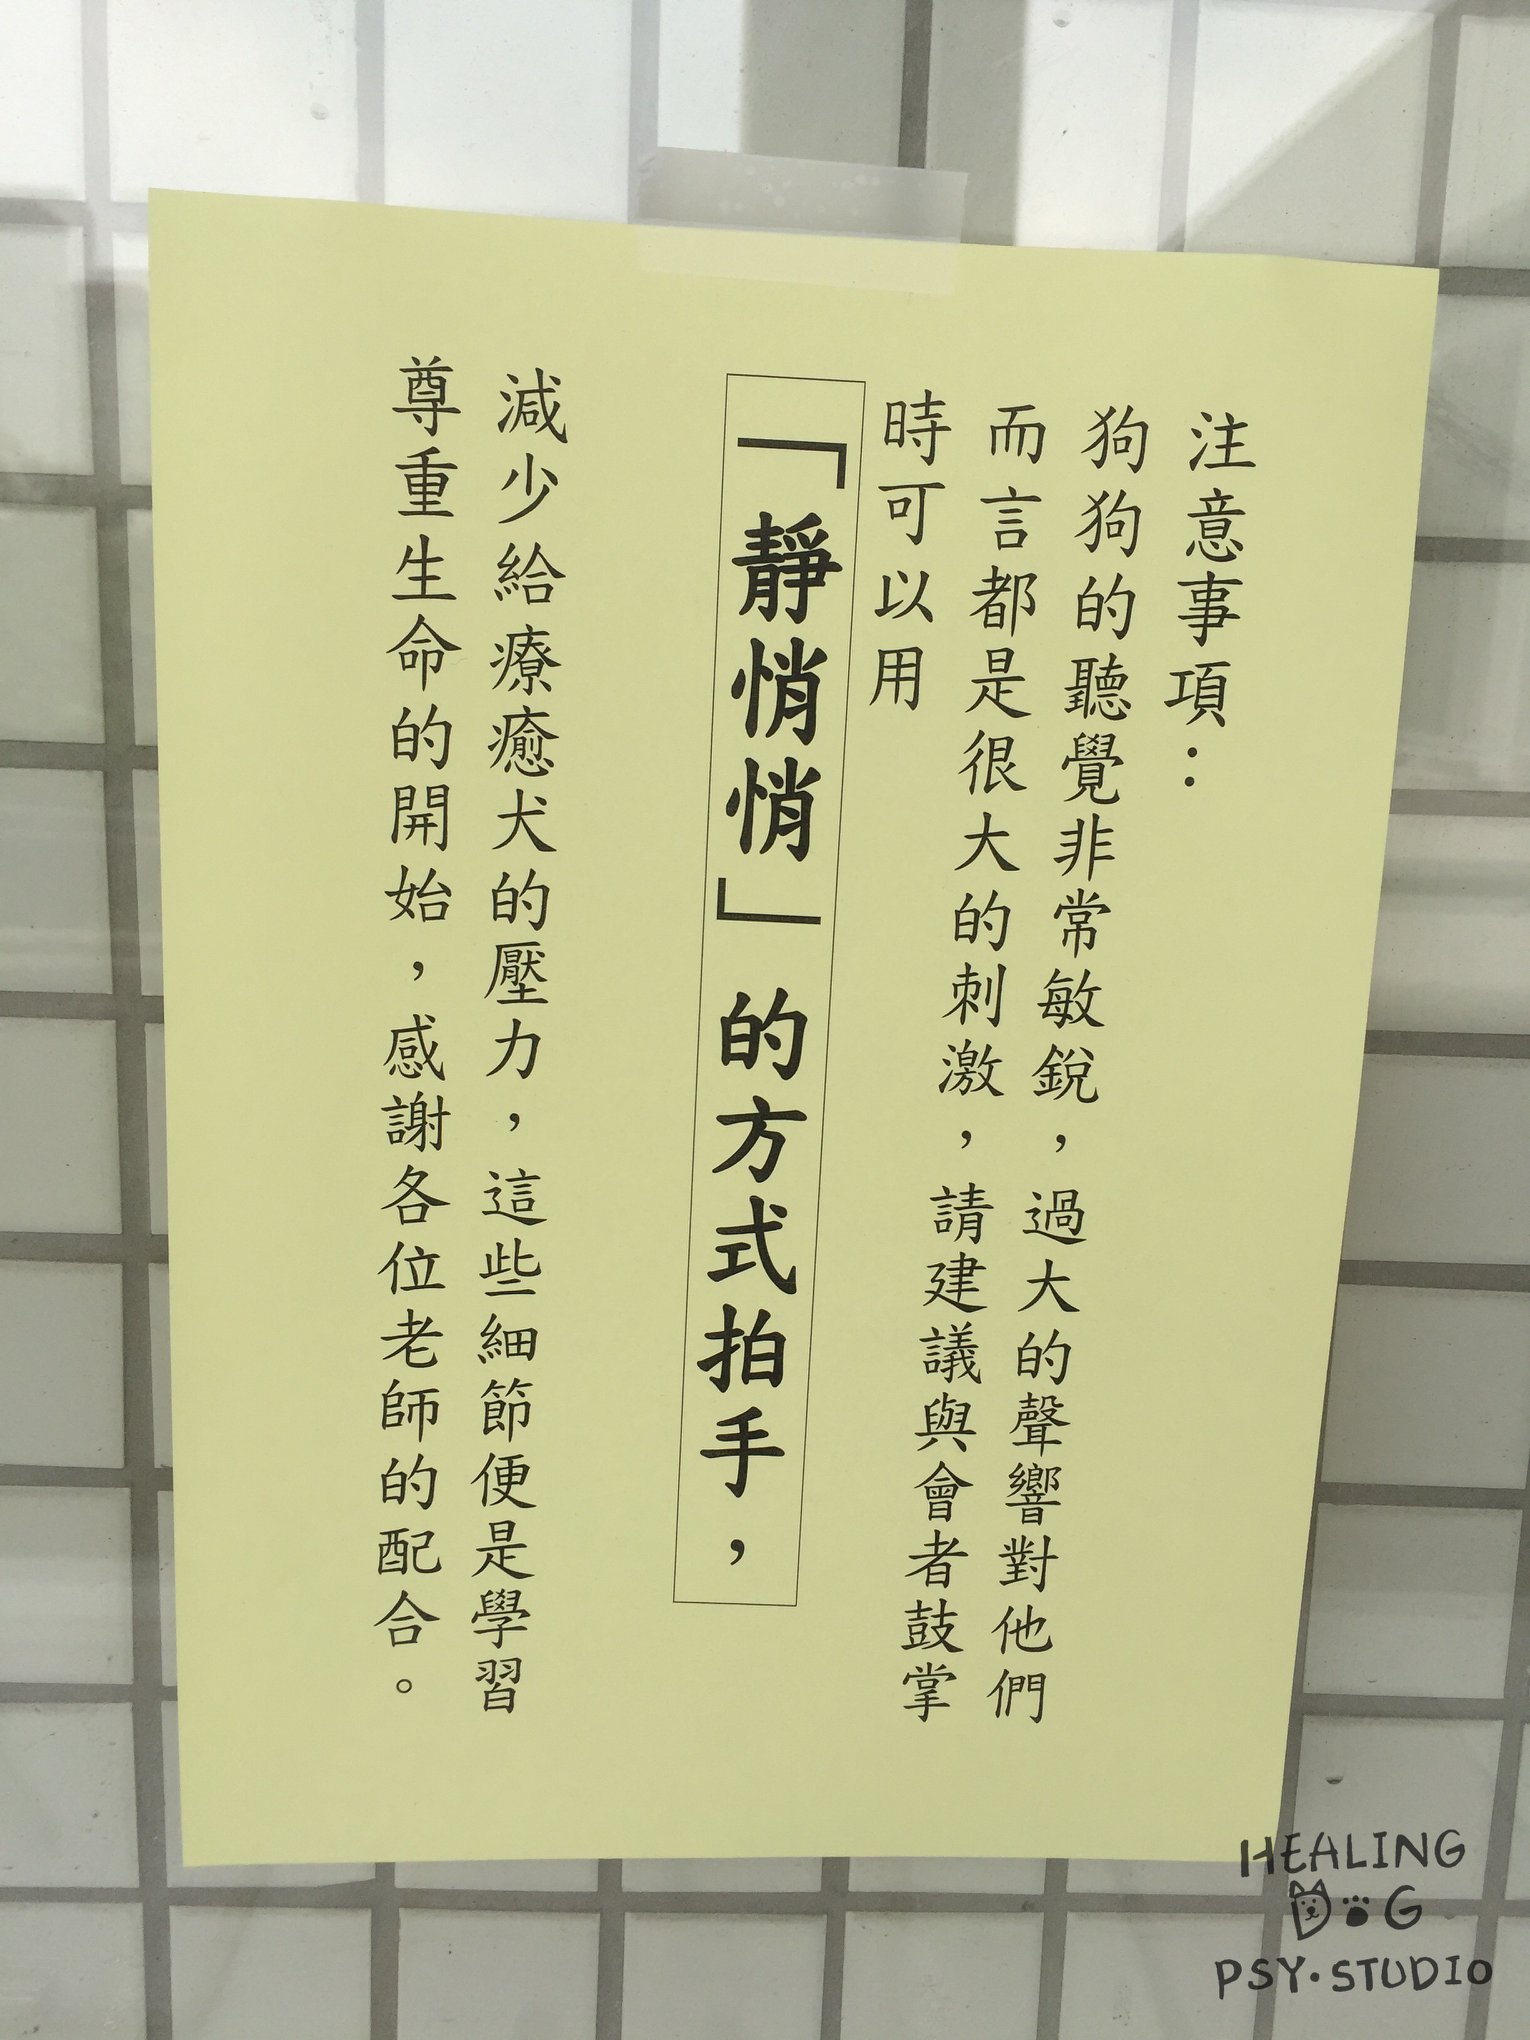 注意事項：
狗狗的聽覺非常敏銳，過大的聲響對他們
而言都是很大的刺激，請建議與會者鼓掌
時可以用
「靜悄悄」的方式拍手，
減少給療癒犬的壓力，這些細節便是學習
尊重生命的開始，感謝各位老師的配合。
HEALING
DOG
PSY·STUDIO